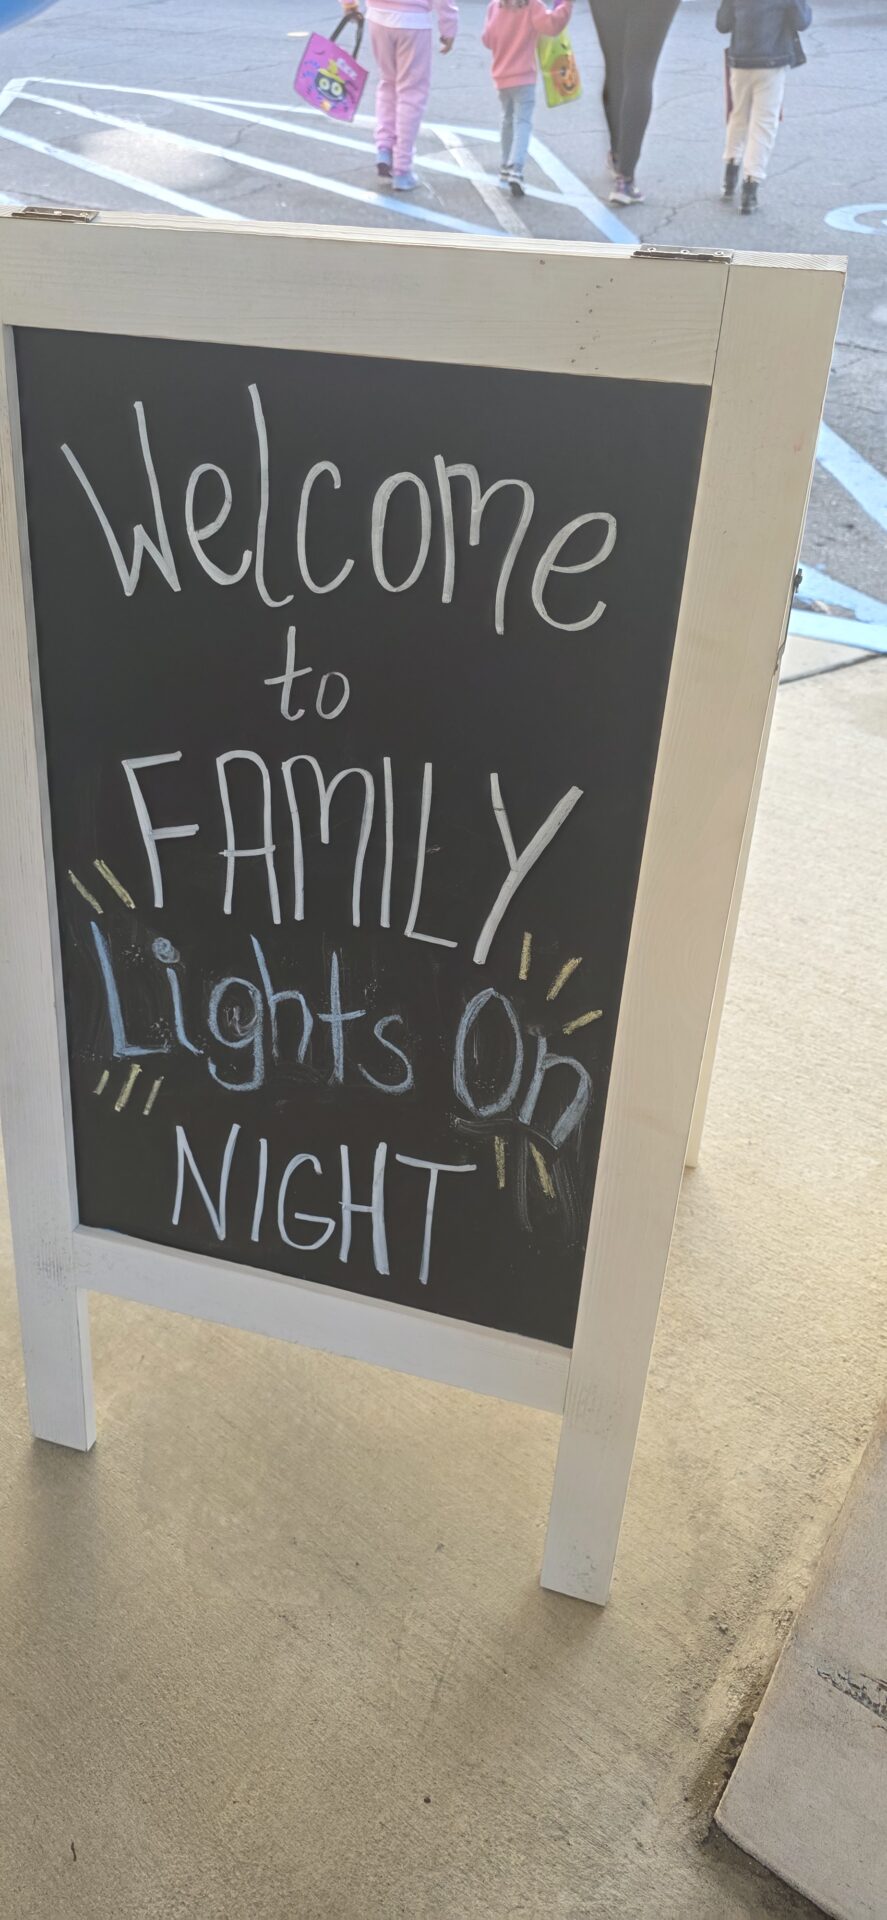 Welcome
to
FAMILY
Lights On
NIGHT